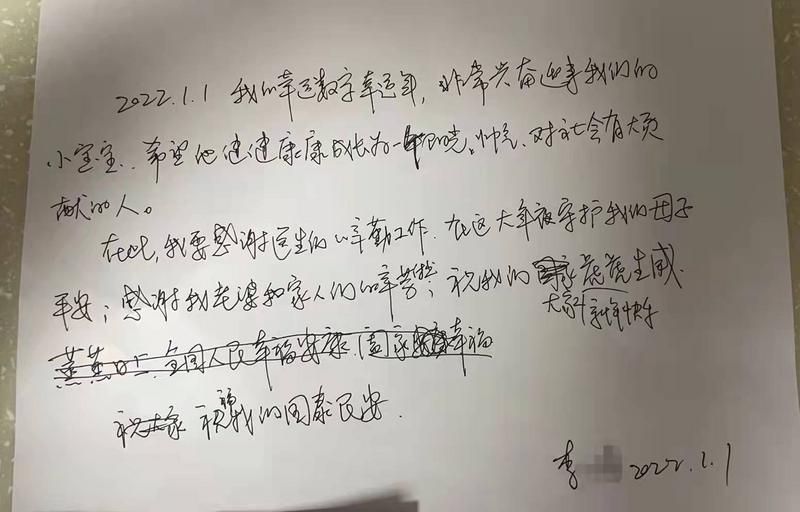 2022.1.1 我的幸运数字幸运年,非常兴奋迎来我们的
小宝宝.希望他健健康康成长为一 帅气、对社会有大贡
献的人。
在此,我要感谢医生的辛勤工作.在这大年夜守护我们母子
平安;感谢我老婆和家人们的辛劳;祝我们 家虎虎生威.
大家新年快乐
蒸蒸日上.全国人民幸福安康.国家 幸福
祝大家 祝我们国泰民安.
李 2022.1.1